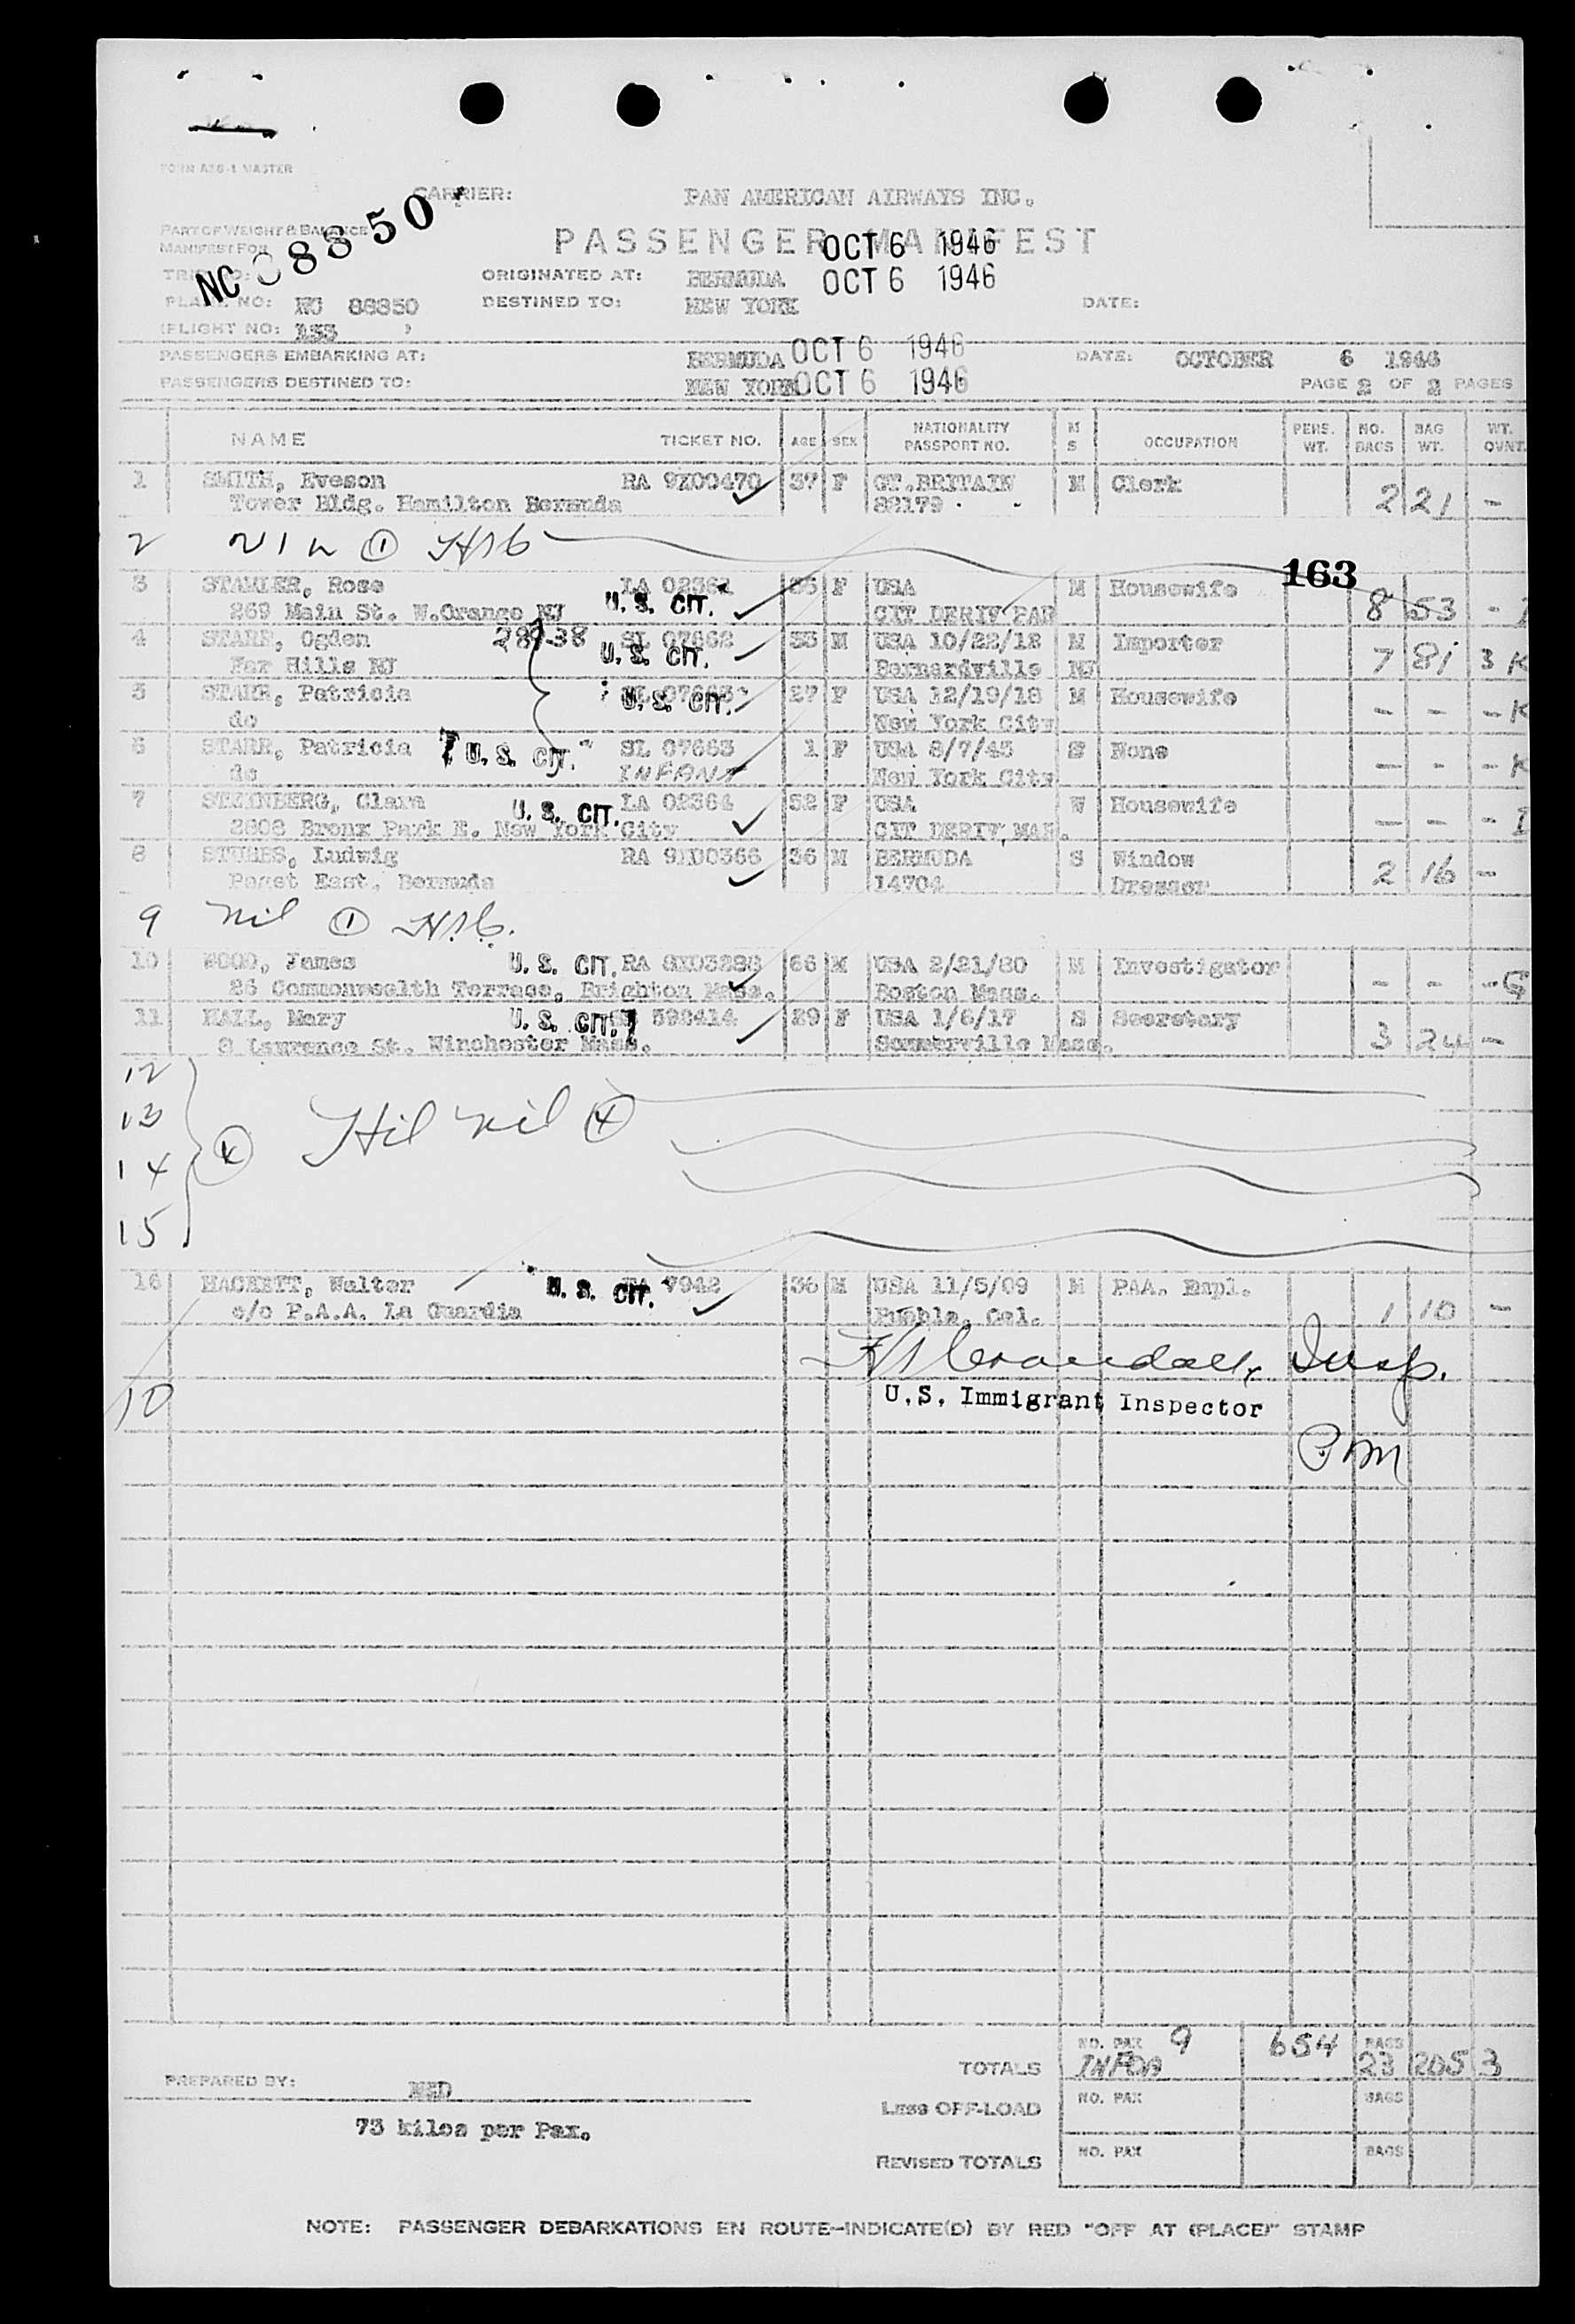 FORM ASB-1 MASTER
CARRIER: PAN AMERICAN AIRWAYS INC.
PART OF WEIGHT & BALANCE
MANIFEST FOR
PASSENGER MANIFEST
OCT 6 1946
NC 88850
TRIP NO:
ORIGINATED AT: BERMUDA OCT 6 1946
PLANE NO: NC 88850 DESTINED TO: NEW YORK DATE:
(FLIGHT NO: 153 )
PASSENGERS EMBARKING AT: BERMUDA OCT 6 1946 DATE: OCTOBER 6 1946
PASSENGERS DESTINED TO: NEW YORK OCT 6 1946 PAGE 2 OF 2 PAGES
NAME TICKET NO. AGE SEX NATIONALITY PASSPORT NO. M S OCCUPATION PERS. WT. NO. BAGS BAG WT. WT. OVNT.
1 SMITH, Eveson RA 9X00470 37 F GT.BRITAIN M Clerk
Tower Bldg. Hamilton Bermuda 82179 2 21 -
2
163
3 STAMLER, Rose LA 02362 36 F USA M Housewife
269 Main St. W.Orange NJ U. S. CIT. CIT DERIV PAR 8 53 -
4 STARR, Ogden SL 07662 33 M USA 10/22/12 M Importer
Far Hills NJ U. S. CIT. Bernardville NJ 7 81 3 K
5 STARR, Patricia 27 F USA 12/19/18 M Housewife
do U. S. CIT. New York City - - - K
6 STARR, Patricia U. S. CIT. SL 07663 1 F USA 8/7/45 S None
do INFANT New York City - - - K
7 STEINBERG, Clara U. S. CIT. LA 02364 52 F USA W Housewife
2808 Bronx Park E. New York City CIT DERIV MAR. - - -
8 STUBBS, Ludwig RA 9X00366 36 M BERMUDA S Window
Paget East, Bermuda 14704 Dresser 2 16 -
9 nil ①
10 WOOD, James U. S. CIT. RA 66 M USA 2/21/80 M Investigator
26 Commonwealth Terrace, Brighton Mass. Boston Mass. - - - G
11 HALL, Mary U. S. CIT. 592414 29 F USA 1/6/17 S Secretary
8 Lawrence St. Winchester Mass. Sommerville Mass. 3 24 -
12
13
nil ④
14
15
16 HACKETT, Walter U. S. CIT. 7942 36 M USA 11/5/09 M PAA. Empl.
c/o P.A.A. La Guardia 1 10 -
Insp.
10
U.S. Immigrant Inspector
TOTALS NO. PAX 9 654 BAGS 23 205 3
PREPARED BY:
Less OFF-LOAD NO. PAX BAGS
73 kilos per Pax.
REVISED TOTALS NO. PAX BAGS
NOTE: PASSENGER DEBARKATIONS EN ROUTE-INDICATE(D) BY RED "OFF AT (PLACE)" STAMP